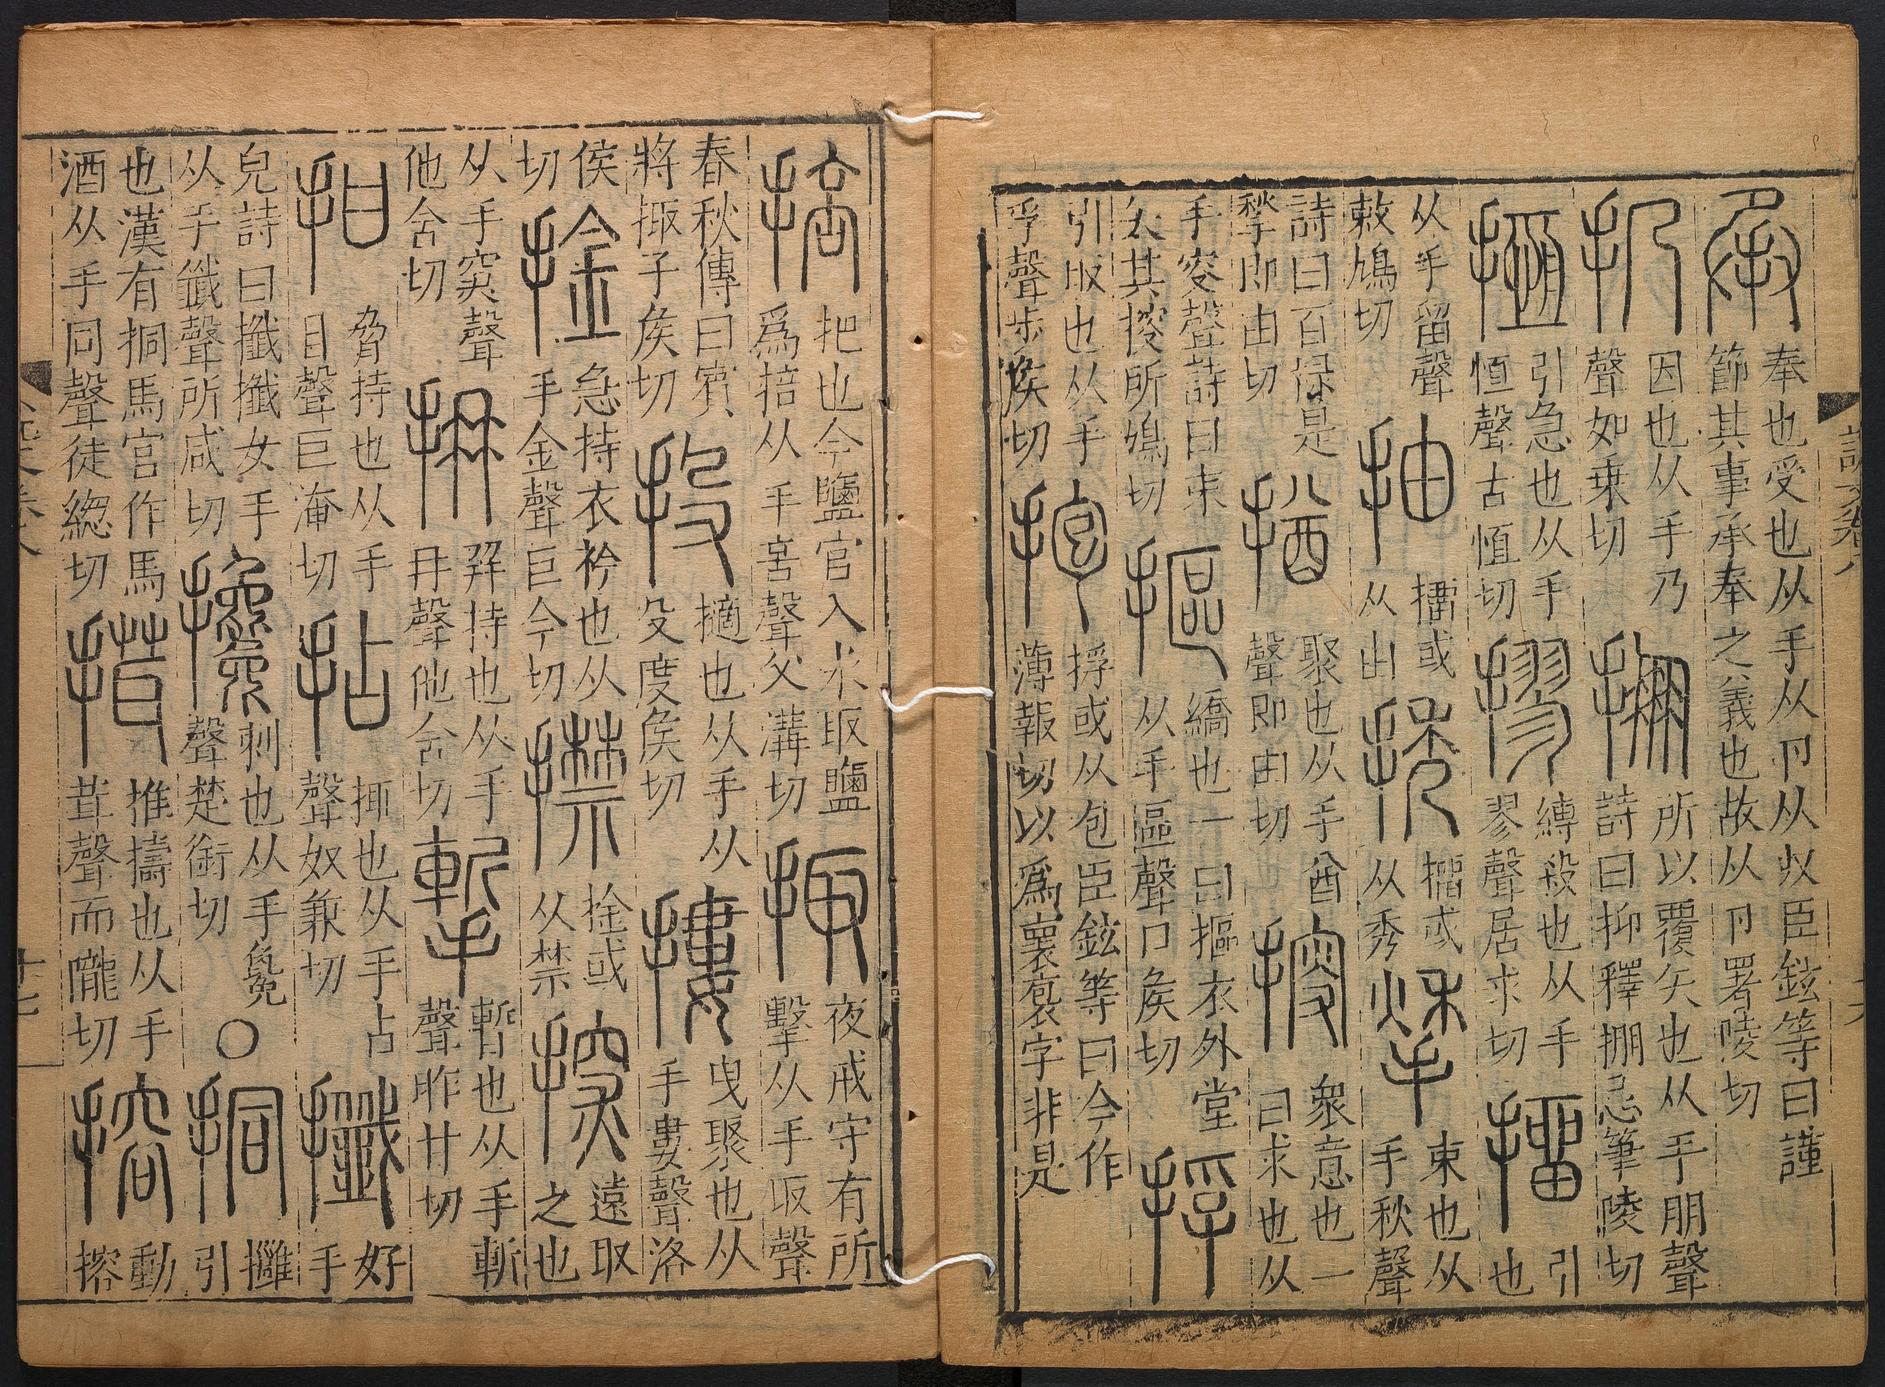 說文卷八
十六
承
奉也受也从手从卪从収臣鉉等曰謹
節其事承奉之義也故从卪署陵切
扔
因也从手乃
聲如乗切
掤
所以覆矢也从手朋聲
詩曰抑釋掤忌筆陵切
搄
引急也从手
恒聲古恒切
摎
縛殺也从手
翏聲居求切
㩅
引
也
从手留聲
敕鳩切
抽
㩅或
从由
㩅或
从秀
揫
束也从
手秋聲
詩曰百禄是
揫即由切
揂
聚也从手酋
聲即由切
搜
衆意也一
曰求也从
手叜聲詩曰束
矢其搜所鳩切
摳
繑也一曰摳衣外堂
从手區聲口矦切
捊
引取也从手
孚聲步矦切
抱
捊或从包臣鉉等曰今作
薄報切以爲褱袌字非是
掊
把也今鹽官入水取鹽
爲掊从手咅聲父溝切
掫
夜戒守有所
擊从手取聲
春秋傳曰賓
將掫子矦切
投
擿也从手从
殳度矦切
摟
曳聚也从
手婁聲洛
侯
切
捦
急持衣衿也从
手金聲巨今切
㩒
捦或
从禁
探
遠取
之也
从手罙聲
他含切
抩
幷持也从手
冄聲他含切
摲
暫也从手斬
聲昨甘切
拑
脅持也从手
甘聲巨淹切
拈
也从手占
聲奴兼切
攕
好
手
皃詩曰攕攕女手
从手韱聲所咸切
攙
刺也从手毚
聲楚銜切
○
挏
引
也漢有挏馬官作馬
酒从手同聲徒緫切
推擣也从手
茸聲而隴切
搈
動
搈
說文卷八
十七